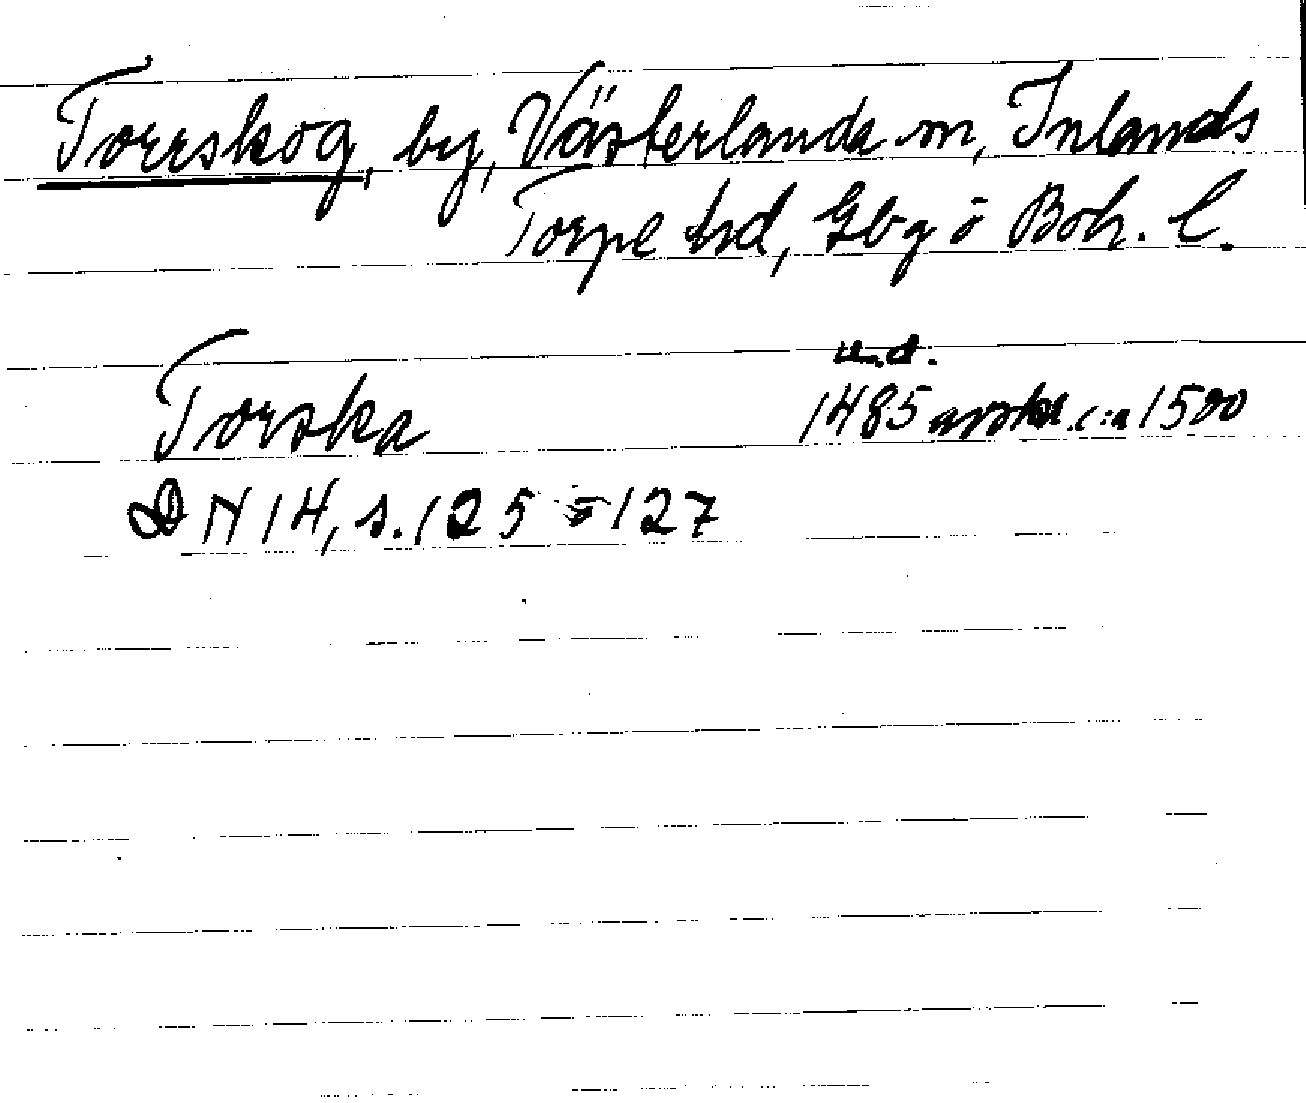 Torrskog, by, Västerlanda sn, Inlands
Torpe hd, Gbg o Boh. l.
u.d.
Torska 1485 avskr. c:a 1500
DN 14, s. 125 - 127